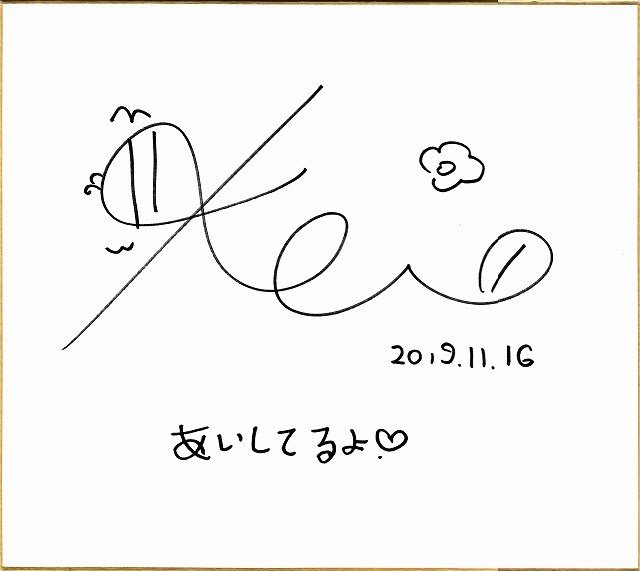 Kei
2019.11.16
あいしてるよ♡